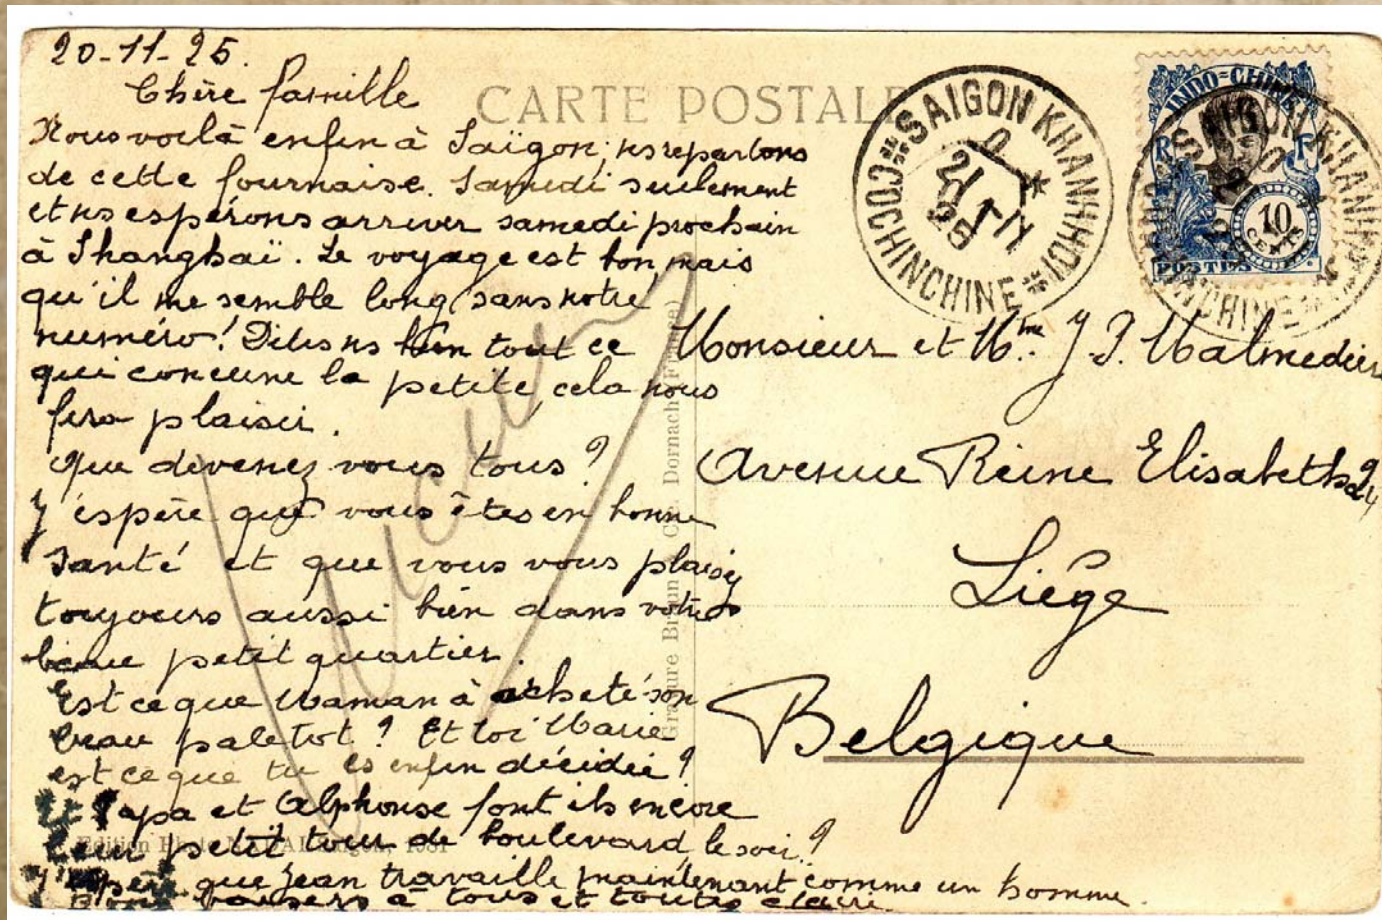 20-11-25.
Chère famille
CARTE POSTALE
Nous voilà enfin à Saïgon; ns repartons
de cette fournaise. Samedi seulement
et ns espérons arriver samedi prochain
à Shanghaï. Le voyage est bon mais
qu'il me semble long sans notre
numéro! Dites ns bien tout ce
qui concerne la petite, cela nous
fera plaisir.
Que devenez vous tous?
J'espère que vous êtes en bonne
santé et que vous vous plaisez
toujours aussi bien dans votre
beau petit quartier.
Est ce que Maman à acheté son
beau paletot? Et toi Marie
est ce que tu es enfin décidée?
Et Papa et Alphonse font ils encore
leur petit tour de boulevard le soir?
J'espère que Jean travaille maintenant comme un homme.
Bons baisers à tous et toutes Claire
SAIGON KHANHHOI
COCHINCHINE
21-11
25
INDO-CHINE
RF
10
CENTS
POSTES
SAIGON KHANHHOI
COCHINCHINE
Monsieur et Mme J. J. Malmedier
Avenue Reine Elisabeth 24
Liége
Belgique
Gravure Braun & Cie. Dornach (France)
Edition Photo NADAL Saigon